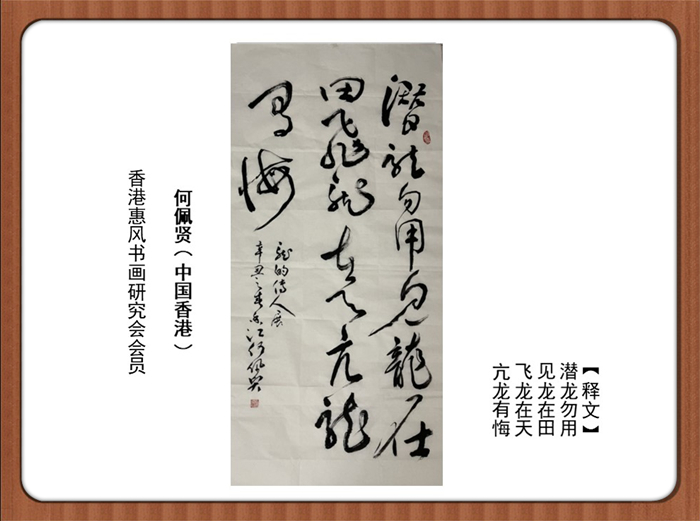 【释文】
潜龙勿用
见龙在田
飞龙在天
亢龙有悔
潛龍勿用見龍在
田飛龍在天亢龍
有悔
龍的傳人展
辛丑之春香江何佩賢
何佩贤（中国香港）
香港惠风书画研究会会员